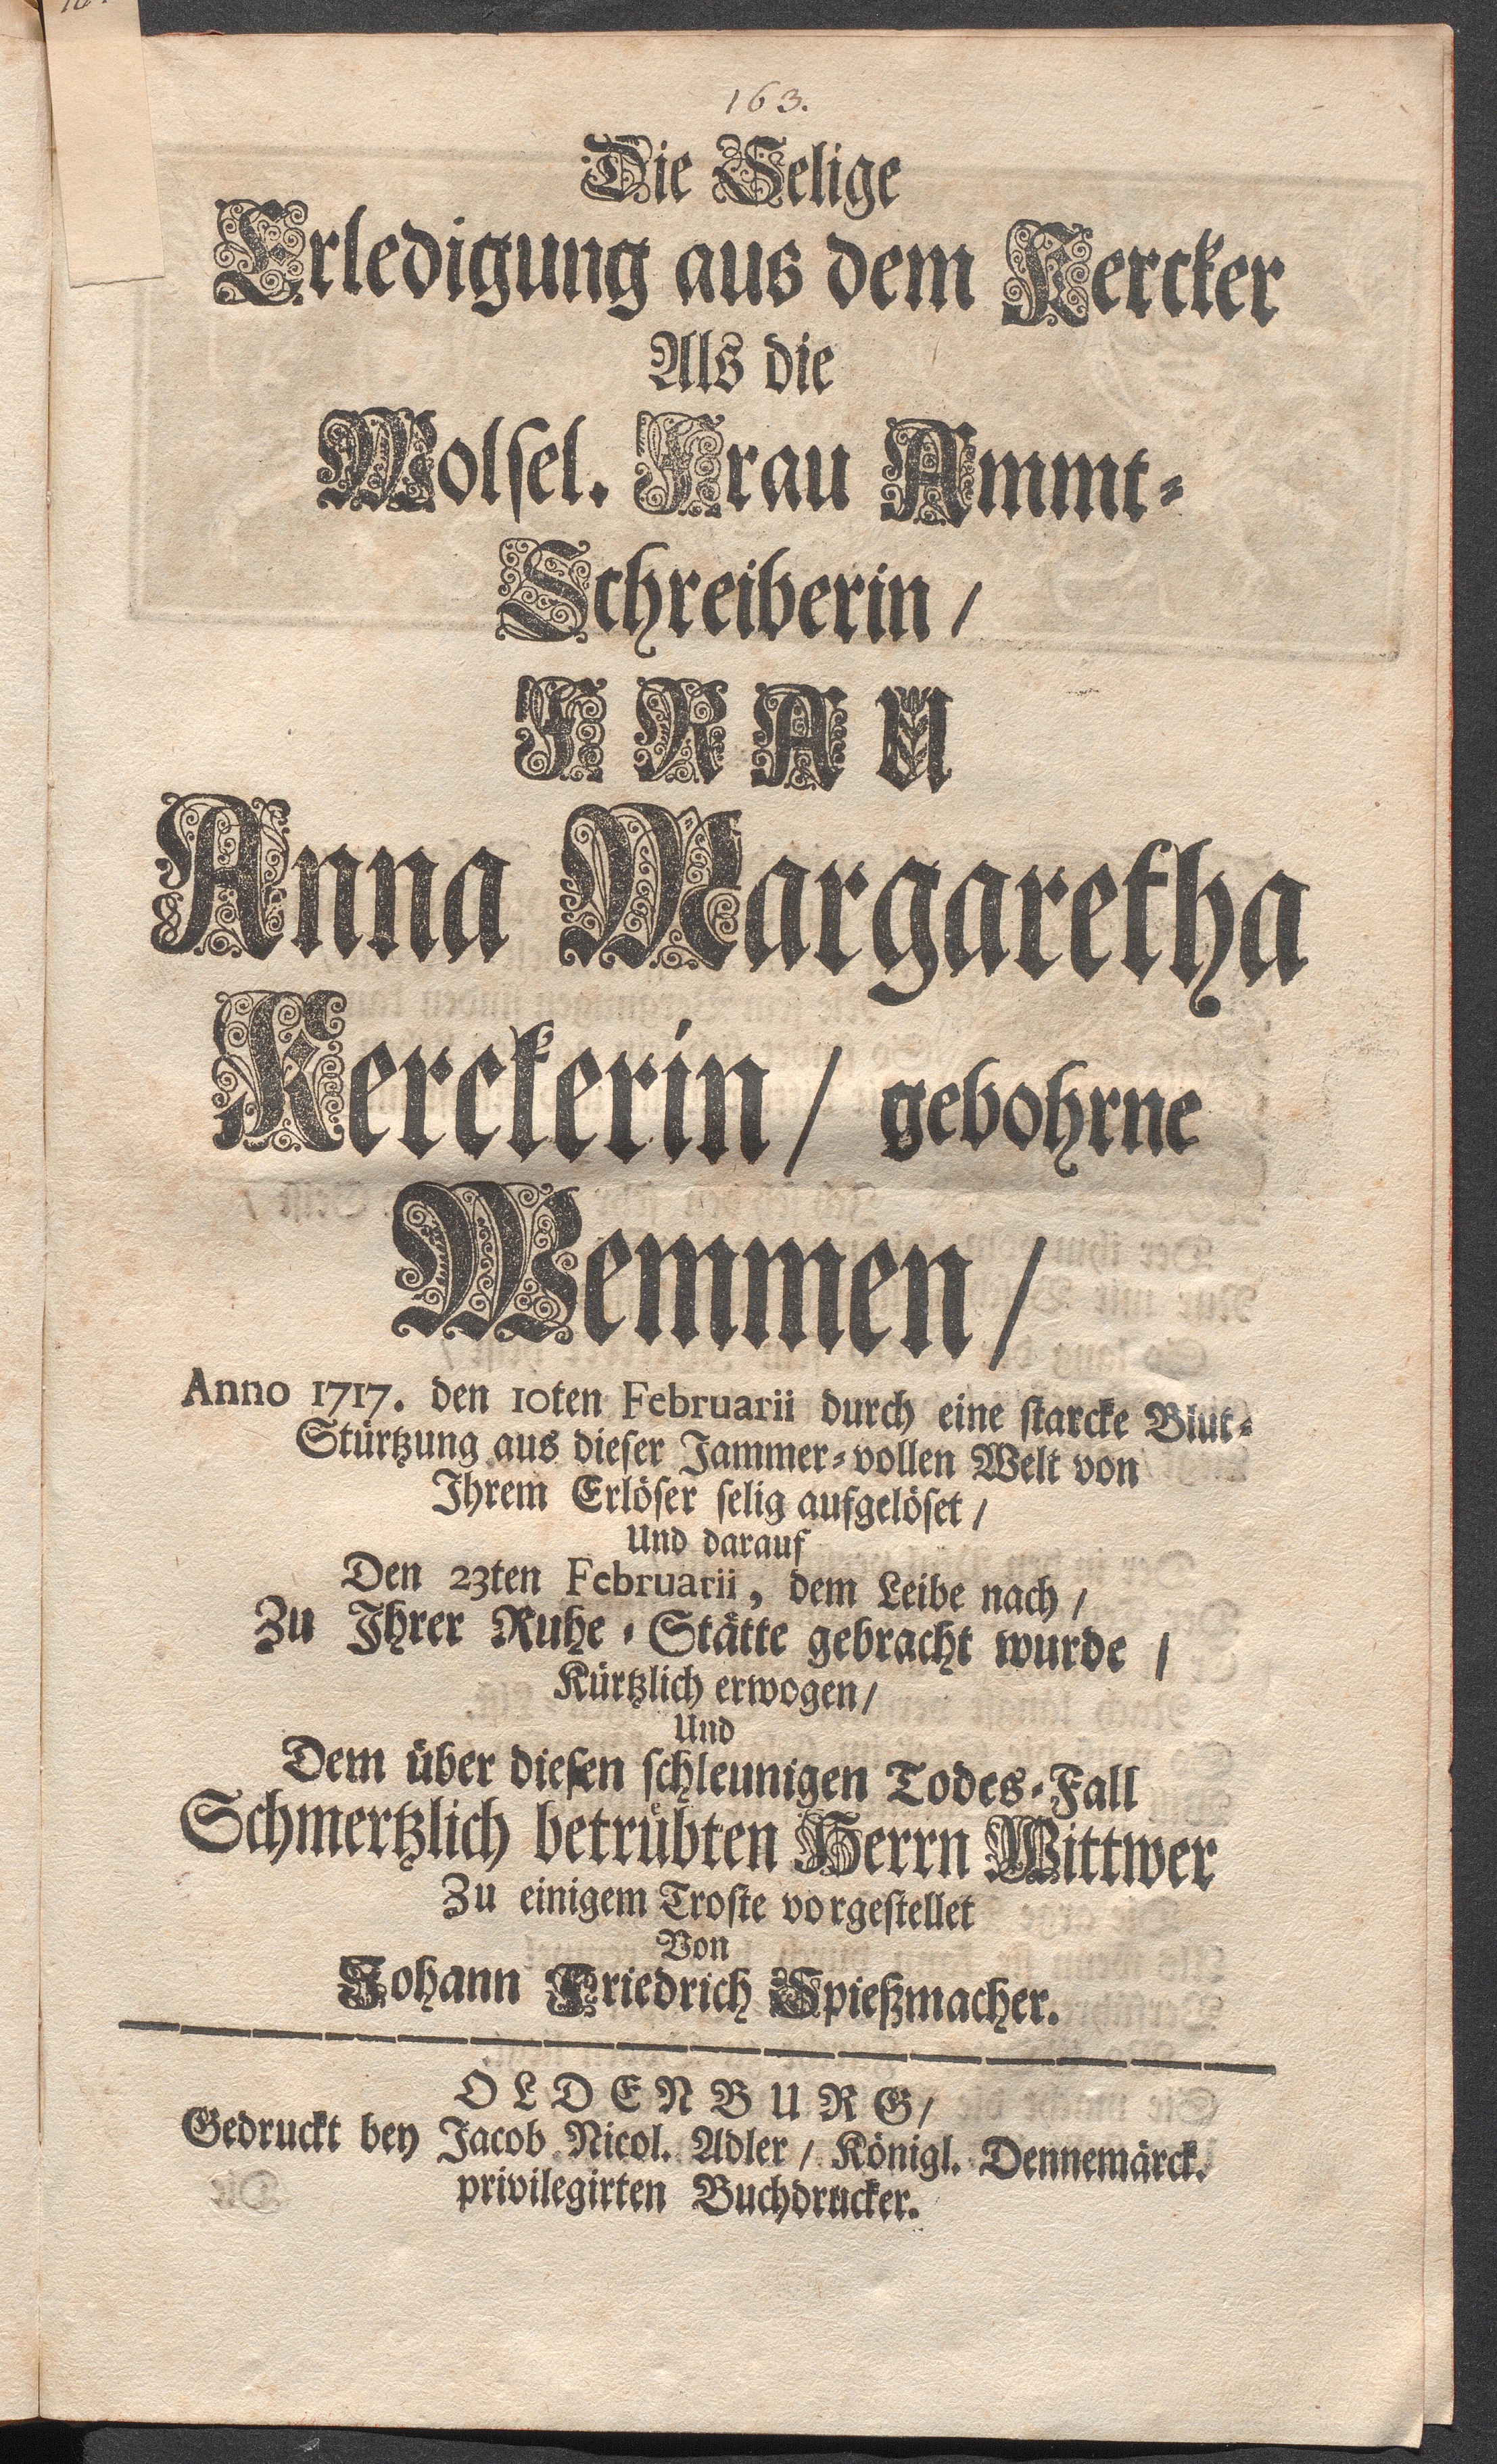 163.
Die Selige
Erledigung aus dem Kercker
Als die
Wolsel. Frau Ammt-
Schreiberin /
FRAU
Anna Margaretha
Kerckerin / gebohrne
Wemmen /
Anno 1717. den 10ten Februarii durch eine starcke Blut-
Stürtzung aus dieser Jammer-vollen Welt von
Ihrem Erlöser selig aufgelöset /
Und darauf
Den 23ten Februarii, dem Leibe nach /
Zu Ihrer Ruhe-Stätte gebracht wurde /
Kürtzlich erwogen /
Und
Dem über diesen schleunigen Todes-Fall
Schmertzlich betrübten Herrn Wittwer
Zu einigem Troste vorgestellet
Von
Johann Friedrich Spießmacher.
OLDENBURG /
Gedruckt bey Jacob Nicol. Adler / Königl. Dennemärck.
privilegirten Buchdrucker.